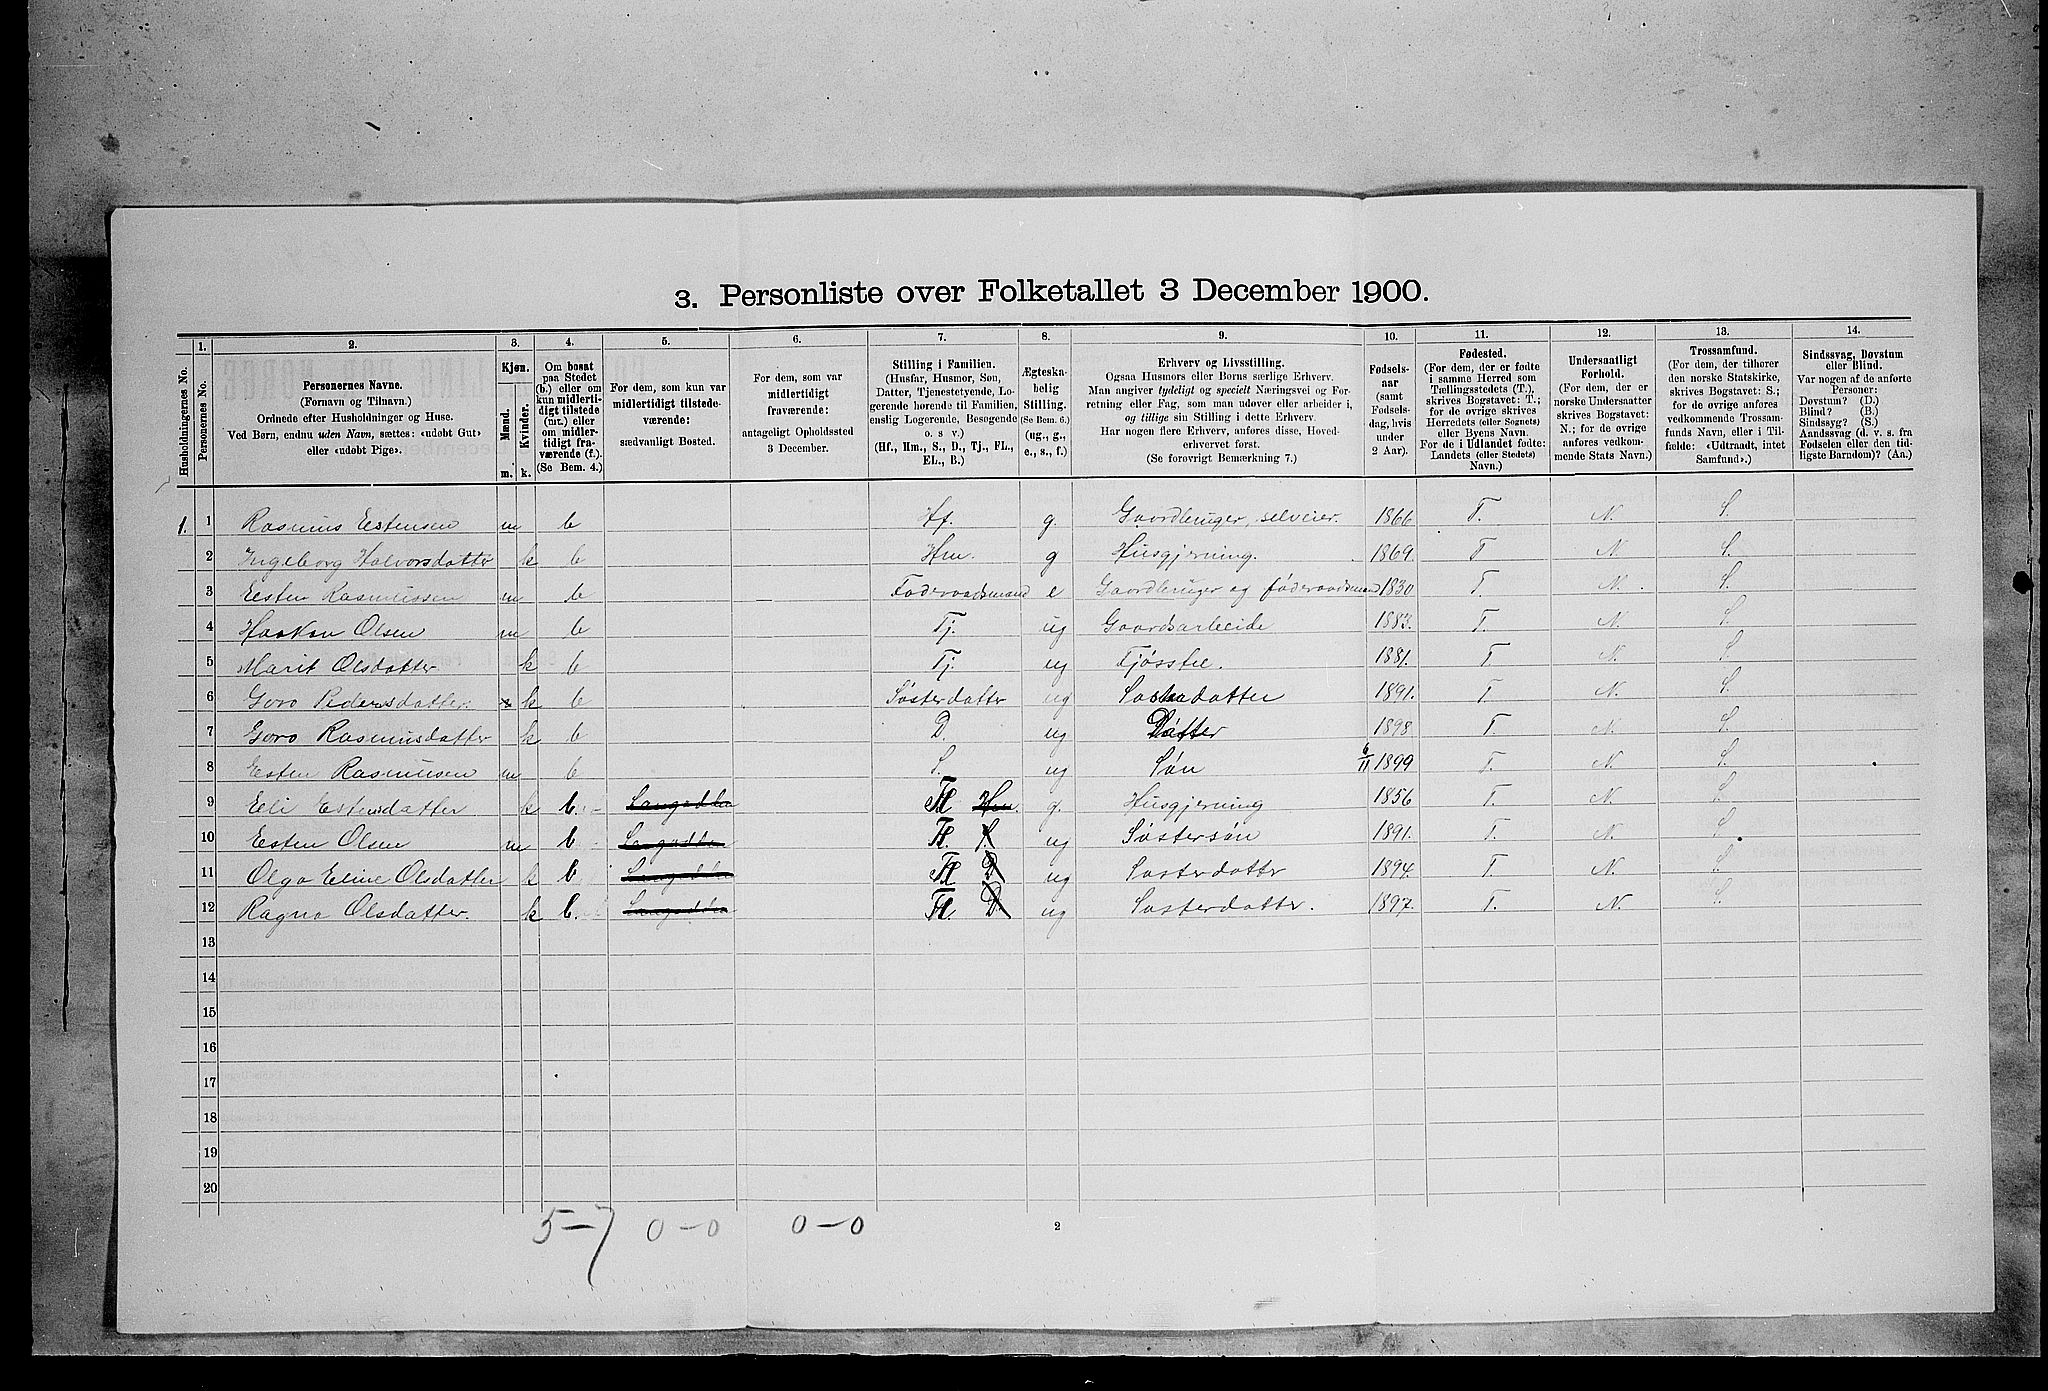 3. Personliste over Folketallet 3 December 1900.
Husholdningernes No.
1.
Personernes No.
2.
Personernes Navne.
(Fornavn og Tilnavn.)
Ordnede efter Husholdninger og Huse.
Ved Børn, endnu uden Navn, sættes: «udøbt Gut»
eller «udøbt Pige».
3.
Kjøn.
Mænd.
Kvinder.
m. k.
4.
Om bosat
paa Stedet
(b.) eller om
kun midlerti-
digt tilstede
(mt.) eller
om midler-
tidigt fra-
værende (f.).
(Se Bem. 4.)
5.
For dem, som kun var
midlertidigt tilstede-
værende:
sædvanligt Bosted.
6.
For dem, som var
midlertidigt
fraværende:
antageligt Opholdssted
3 December.
7.
Stilling i Familien.
(Husfar, Husmor, Søn,
Datter, Tjenestetyende, Lo-
gerende hørende til Familien,
enslig Logerende, Besøgende
o. s v.)
(Hf., Hm., S., D., Tj., FL.,
EL., B.)
8.
Ægteska-
belig
Stilling.
(Se Bem. 6.)
(ug., g.,
e., s., f.)
9.
Erhverv og Livsstilling.
Ogsaa Husmors eller Børns særlige Erhverv.
Man angiver tydeligt og specielt Næringsvei og For-
retning eller Fag, som man udøver eller arbeider i,
og tillige sin Stilling i dette Erhverv.
Har nogen flere Erhverv, anføres disse, Hoved-
erhvervet først.
(Se forøvrigt Bemærkning 7.)
10.
Fødsels-
aar
(samt
Fødsels-
dag, hvis
under
2 Aar).
11.
Fødested.
(For dem, der er fødte
i samme Herred som
Tællingsstedets (T.),
skrives Bogstavet: T.;
for de øvrige skrives
Herredets (eller Sognets)
eller Byens Navn.
For de i Udlandet fødte:
Landets (eller Stedets)
Navn.)
12.
Undersaatligt
Forhold.
(For dem, der er
norske Undersaatter
skrives Bogstavet:
N.; for de øvrige
anføres vedkom-
mende Stats Navn.)
13.
Trossamfund.
(For dem, der tilhører
den norske Statskirke,
skrives Bogstavet: S.;
for de øvrige anføres
vedkommende Trossam-
funds Navn, eller i Til-
fælde: «Udtraadt, intet
Samfund».)
14.
Sindssvag, Døvstum
eller Blind.
Var nogen af de anførte
Personer:
Døvstum? (D.)
Blind? (B.)
Sindssyg? (S.)
Aandssvag (d. v. s. fra
Fødselen eller den tid-
ligste Barndom)? (Aa.)
1. 1 Rasmus Estensen m b Hf. g. Gaardbruger, selveier. 1866 T. N. S.
2 Ingeborg Halvorsdatter k b Hm. g Husgjerning. 1869. T N S.
3 Esten Rasmussen m b Føderaadsmand e Gaardbruger og føderaadsmand 1830 T. N. S.
4 Haakon Olsen m b Tj. ug Gaardsarbeide 1883. T. N. S.
5 Marit Olsdatter k b Tj. ug Fjøsstel. 1881. T N. S.
6 Goro Pedersdatter. k b Søsterdatter ug Søsterdatter 1891. T. N. S.
7 Goro Rasmusdatter k b D. ug Datter 1898. T N. S.
8 Esten Rasmussen m b S. ug Søn 6/11 1899 T. N. S.
9 Eli Estensdatter k b. Fl Hm. g. Husgjerning 1856 T. N. S.
10 Esten Olsen m b Fl. S. ug Søstersøn 1891. T. N. S.
11 Olga Eline Olsdatter k b Fl D. ug Søsterdatter 1894. T N. S.
12 Ragna Olsdatter. k b. Fl. D. ug Søsterdatter. 1897. T. N. S.
13
14
15
16
17
18
19
20
5-7 0-0 0-0
2